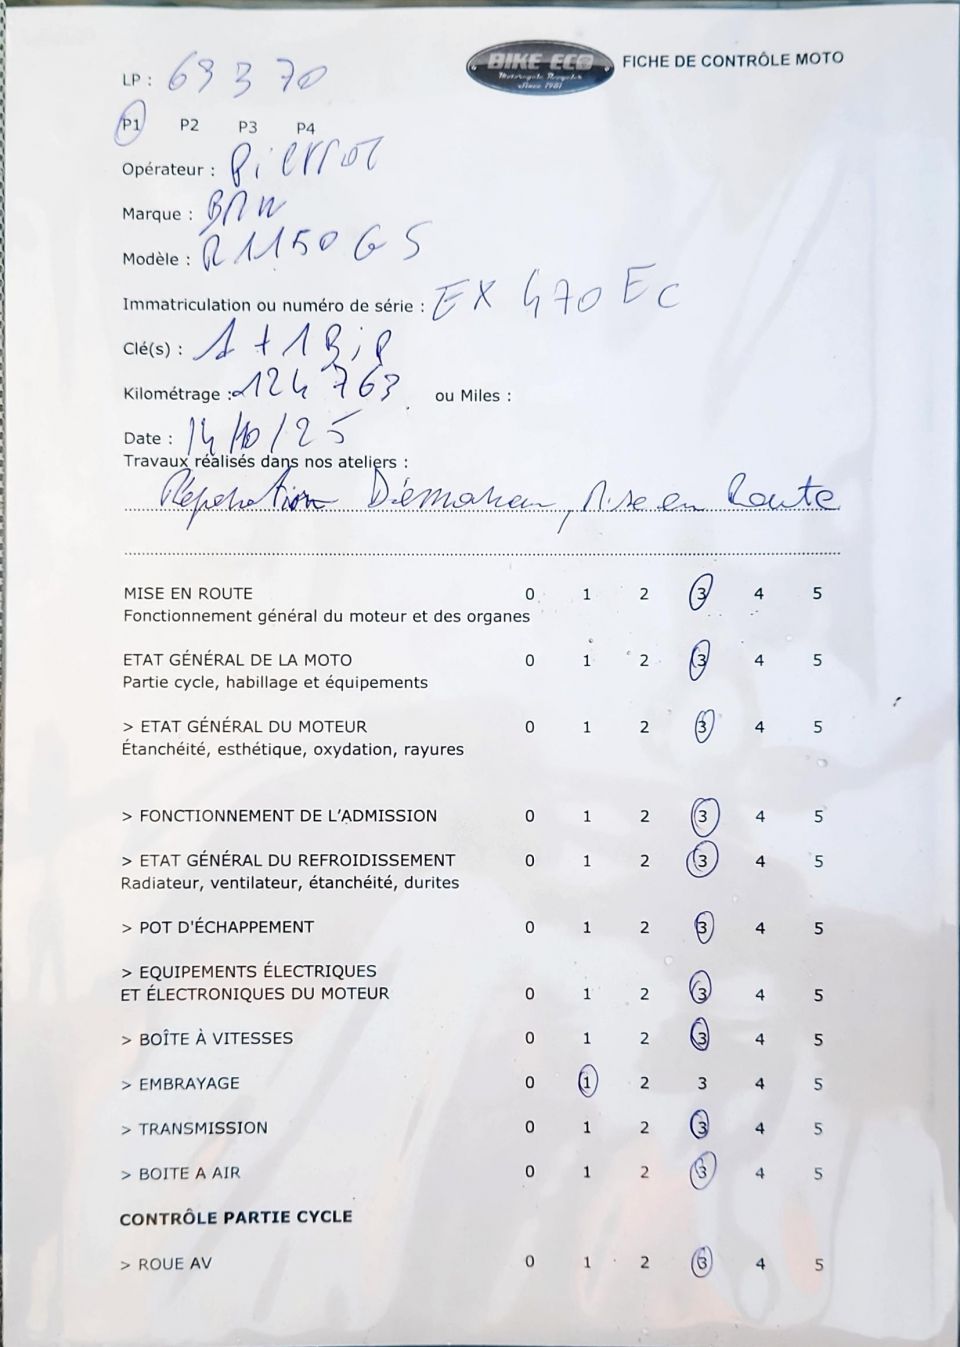 BIKE ECO
Motorcycle Recycler
Since 1981
FICHE DE CONTRÔLE MOTO
LP : 69370
P1 P2 P3 P4
Opérateur : Pierrot
Marque : BMW
Modèle : R1150 GS
Immatriculation ou numéro de série : EX 470 EC
Clé(s) : 1 + 1 Bip
Kilométrage : 124 763 ou Miles :
Date : 14/10/25
Travaux réalisés dans nos ateliers :
Réparation Démarreur, Mise en Route
MISE EN ROUTE 0 1 2 3 4 5
Fonctionnement général du moteur et des organes
ETAT GÉNÉRAL DE LA MOTO 0 1 2 3 4 5
Partie cycle, habillage et équipements
> ETAT GÉNÉRAL DU MOTEUR 0 1 2 3 4 5
Étanchéité, esthétique, oxydation, rayures
> FONCTIONNEMENT DE L'ADMISSION 0 1 2 3 4 5
> ETAT GÉNÉRAL DU REFROIDISSEMENT 0 1 2 3 4 5
Radiateur, ventilateur, étanchéité, durites
> POT D'ÉCHAPPEMENT 0 1 2 3 4 5
> EQUIPEMENTS ÉLECTRIQUES
ET ÉLECTRONIQUES DU MOTEUR 0 1 2 3 4 5
> BOÎTE À VITESSES 0 1 2 3 4 5
> EMBRAYAGE 0 1 2 3 4 5
> TRANSMISSION 0 1 2 3 4 5
> BOITE A AIR 0 1 2 3 4 5
CONTRÔLE PARTIE CYCLE
> ROUE AV 0 1 2 3 4 5